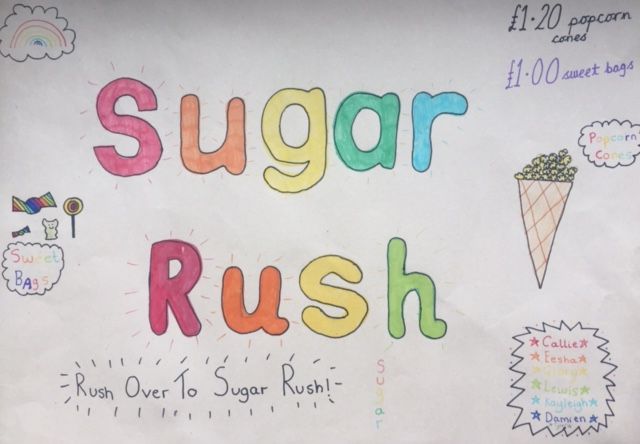 £1.20 popcorn
cones
£1.00 sweet bags
Sugar
Popcorn
Cones
Sweet
BAgs
Rush
Rush Over To Sugar Rush!
Sugar
Callie
Eesha
Lewis
Kayleigh
Damien